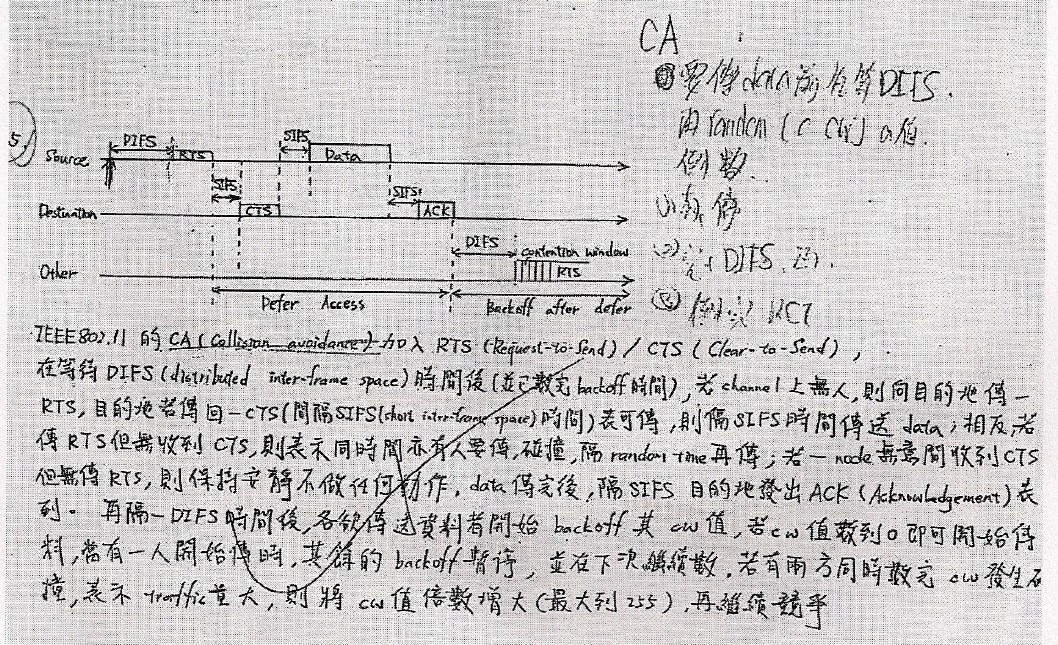 CA
要傳data前先等DIFS.
random
倒數.
DIFS
5.
DIFS
SIFS
Source
RTS
Data
SIFS
SIFS
Destination
CTS
ACK
DIFS
contention window
Other
RTS
Defer Access
Backoff after defer
IEEE802.11 的 CA (Collision avoidance) 加入 RTS (Request-to-Send) / CTS (Clear-to-Send),
在等待 DIFS (distributed inter-frame space) 時間後 (並已數完 backoff 時間), 若 channel 上無人, 則向目的地傳一
RTS, 目的地若傳回一 CTS (間隔 SIFS (short inter-frame space) 時間) 表可傳, 則隔 SIFS 時間傳送 data; 相反, 若
傳 RTS 但無收到 CTS, 則表示同時間亦有人要傳, 碰撞, 隔 random time 再傳; 若一 node 無意間收到 CTS
但無傳 RTS, 則保持安靜不做任何動作. data 傳完後, 隔 SIFS 目的地發出 ACK (Acknowledgement) 表
到。再隔一 DIFS 時間後, 各欲傳送資料者開始 backoff 其 cw 值, 若 cw 值數到 0 即可開始傳
料, 當有一人開始傳時, 其餘的 backoff 暫停, 並在下次繼續數. 若有兩方同時數完 cw 發生
撞, 表示 traffic 量大, 則將 cw 值倍數增大 (最大到 255), 再繼續競爭